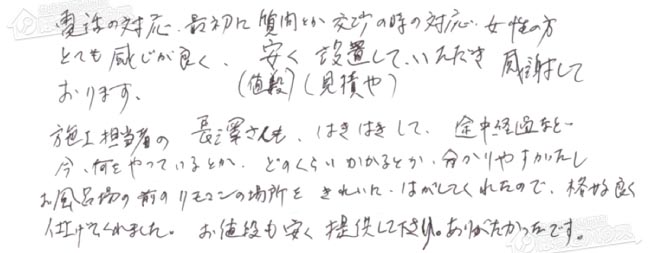 電話の対応、最初に質問とか交渉の時の対応、女性の方
とても感じが良く、安く設置して、いただき感謝して
(値段)(見積や)
おります。
施工担当者の長澤さんも、はきはきして、途中経過など
今、何をやっているとか、どのくらいかかるとか、分かりやすかたし
お風呂場の前のリモコンの場所をきれいに、はがしてくれたので、格好良く
仕上げてくれました。お値段も安く提供して下さり。ありがたかったです。